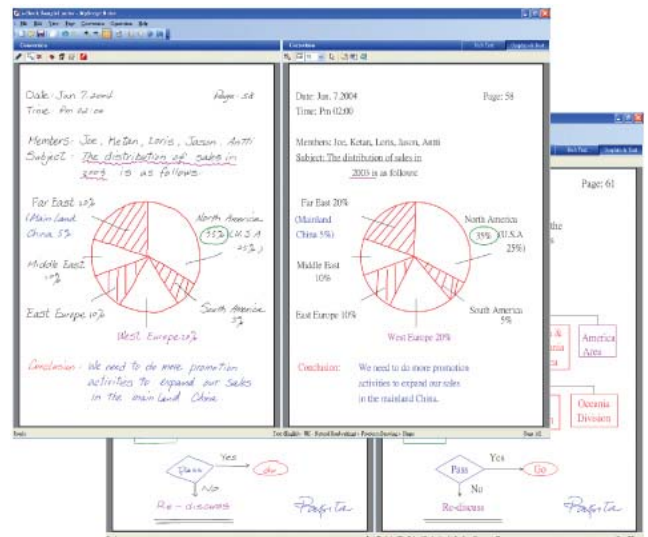 Date: Jan 7. 2004 Page: 58
Time: Pm 02:00
Members: Joe, Ketan, Loris, Jason, Antti
Subject: The distribution of sales in
2003 is as follows
Far East 20%
(Main land
China 5%
North America
35% (U.S.A
25%)
Middle East
10%
East Europe 10%
South America
5%
West Europe 20%
Conclusion: We need to do more promotion
activities to expand our sales
in the main land China
Date: Jan. 7.2004 Page: 58
Time: Pm 02:00
Members: Joe, Ketan, Loris, Jason, Antti
Subject: The distribution of sales in
2003 is as follows:
Far East 20%
(Mainland
China 5%)
North America
35% (U.S.A
25%)
Middle East
10%
East Europe 10%
South America
5%
West Europe 20%
Conclusion: We need to do more promotion
activities to expand our sales
in the mainland China.
Page: 61
America
Area
Oceania
Division
Pass
Yes
No
Re-discuss
Pass
Yes
Go
No
Re-discuss